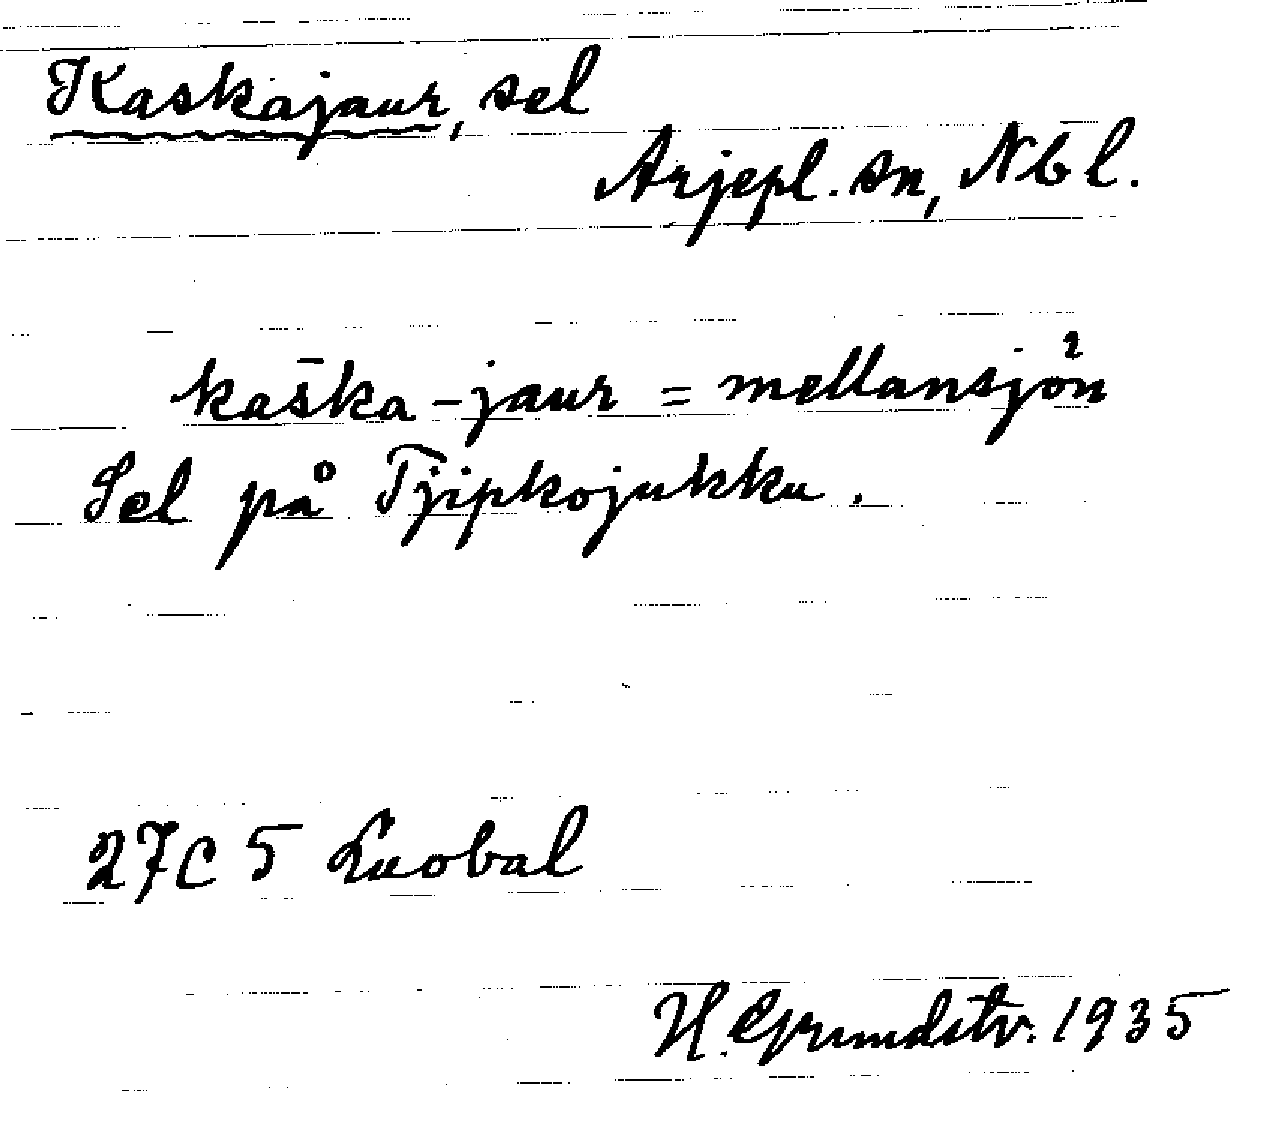 Kaskajaur, sel
Arjepl. sn, Nbl.
kas̄ka-jaur = mellansjön
Sel på Tjipkojukku.
27C 5 Luobal
H. Grundstr. 1935